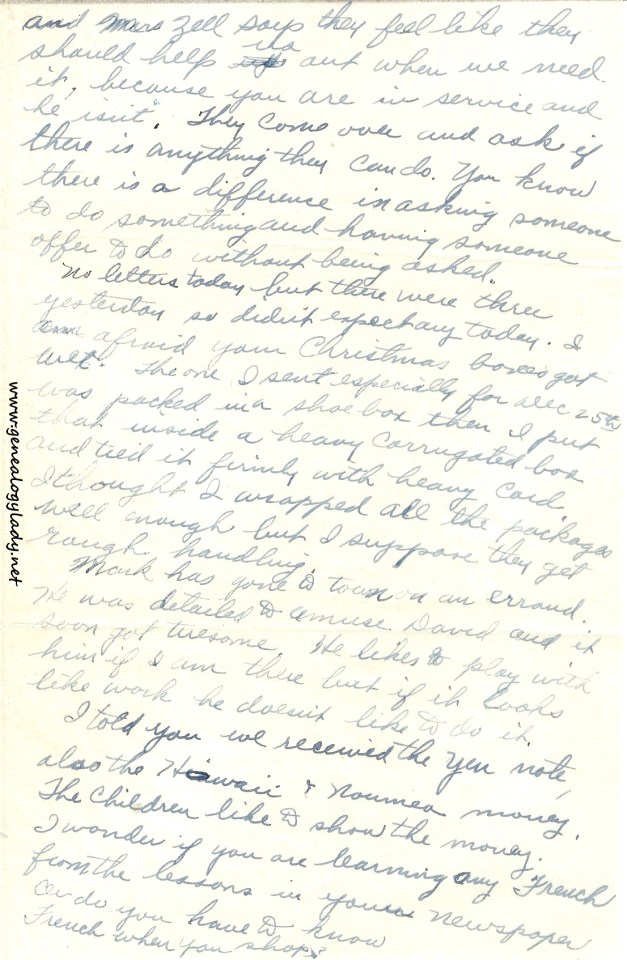 and Mrs Zell says they feel like they
should help us out when we need
it, because you are in service and
he isn't. They come over and ask if
there is anything they can do. You know
there is a difference in asking someone
to do something and having someone
offer to do without being asked.
No letters today but there were three
yesterday so didn't expect any today. I
am afraid your Christmas boxes got
wet. The one I sent especially for Dec 25th
was packed in a shoe box then I put
that inside a heavy corrugated box
and tied it firmly with heavy cord.
I thought I wrapped all the packages
well enough but I suppose they get
rough handling.
Mark has gone to town on an errand.
He was detailed to amuse David and it
soon got tiresome. He likes to play with
him if I am there but if it looks
like work he doesn't like to do it.
I told you we received the Yen note,
also the Hawaii & Noumea money.
The Children like to show the money.
I wonder if you are learning any French
from the lessons in your newspaper
or do you have to know
French when you shop?
www.genealogylady.net